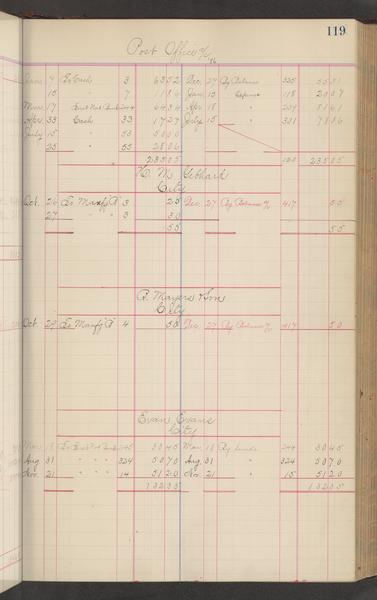 119
Post Office
7 To Cash 3 6352 Dec. 27 By Balance
15 " 7 Jan 15 " 118 2007
Mar. 17 First Nat Bank Apr. 18 "
Apr. 33 Cash 33 1727 July 15 " 321
July 15 " 53 5000
25 " 55 2806
23505 23505
City
Oct. 26 To Manfg 3 25 Dec. 27 By Balance 417 55
27 " " 3 30
55 55
P. Mayers & Son
City
Oct. 29 To Manfg 4 50 Dec. 27 By Balance 417 50
Evan Evans
City
Mar. 18 To First Nat Bank 3045 Mar. 18 By 244 3045
Aug. 31 " " " 324 5070 Aug. 31 " 324 5070
Nov. 21 " " " 14 5120 Nov. 21 " 15 5120
13235 13235